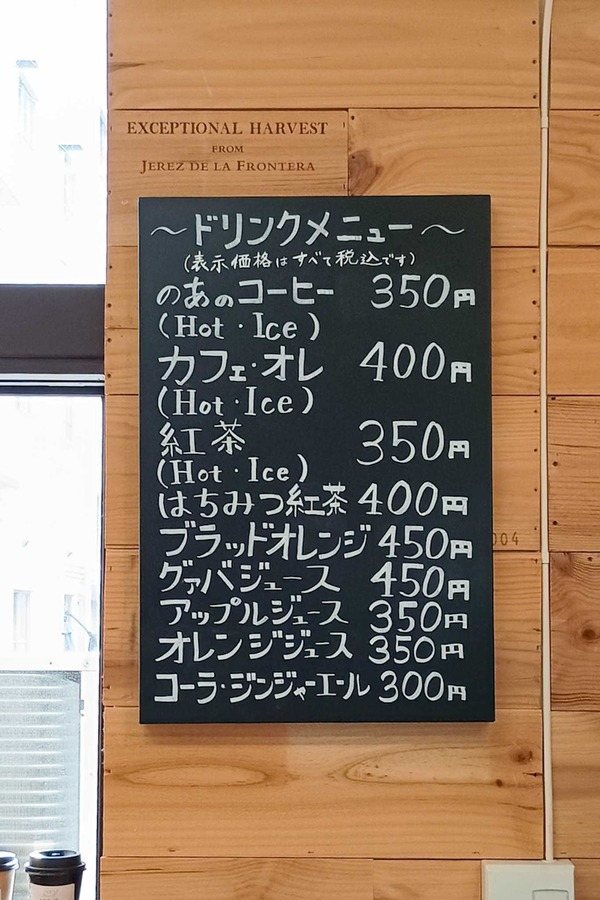 EXCEPTIONAL HARVEST
FROM
JEREZ DE LA FRONTERA
～ドリンクメニュー～
(表示価格はすべて税込です)
のあのコーヒー 350円
(Hot・Ice)
カフェ・オレ 400円
(Hot・Ice)
紅茶 350円
(Hot・Ice)
はちみつ紅茶 400円
ブラッドオレンジ 450円
グァバジュース 450円
アップルジュース 350円
オレンジジュース 350円
コーラ・ジンジャーエール 300円
004